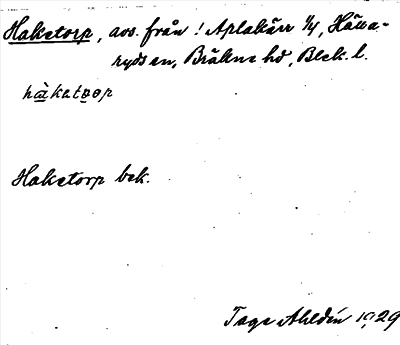 Haketorp, avs. från ! Aplakärr 1/4, Hälla-
ryds sn, Bräkne hd, Blek. l.
hàketorp
Haketorp bek.
Tage Ahldin 1929